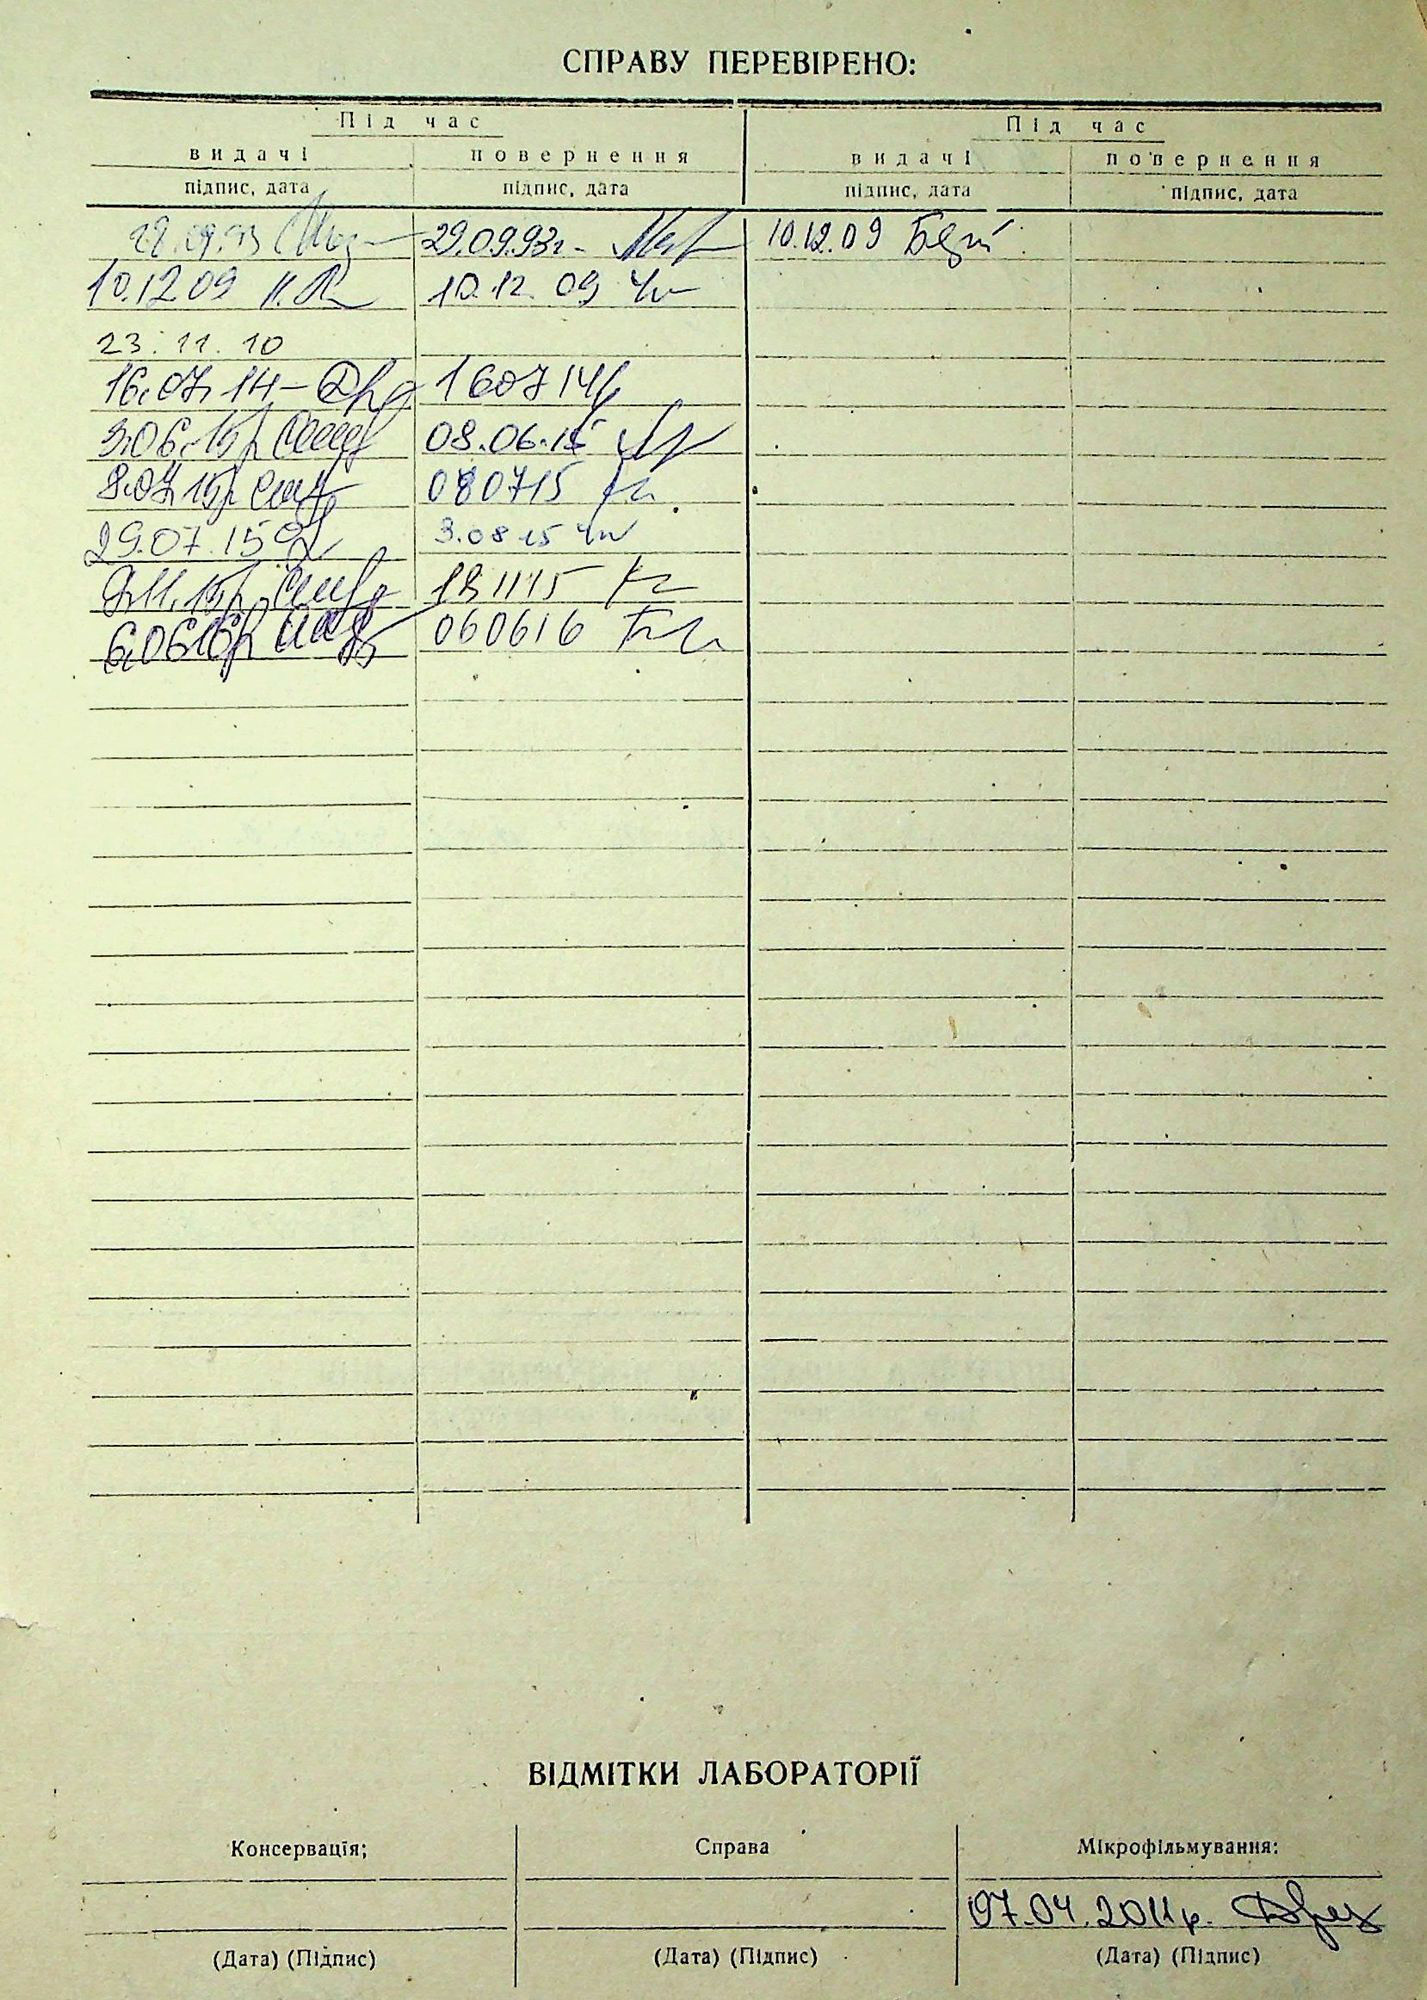 СПРАВУ ПЕРЕВІРЕНО:
Під час Під час
видачі повернення видачі повернення
підпис, дата підпис, дата підпис, дата підпис, дата
29.09.93г. 10.12.09
10.12 09 10.12.09
23.11.10
16.07.14 160714
3.06.15р 08.06.15
8.07.15р 080715
29.07.15 3.08.15
9.11.15р. 181115
6.06.16р 060616
ВІДМІТКИ ЛАБОРАТОРІЇ
Консервація; Справа Мікрофільмування:
07.04.2011р.
(Дата) (Підпис) (Дата) (Підпис) (Дата) (Підпис)